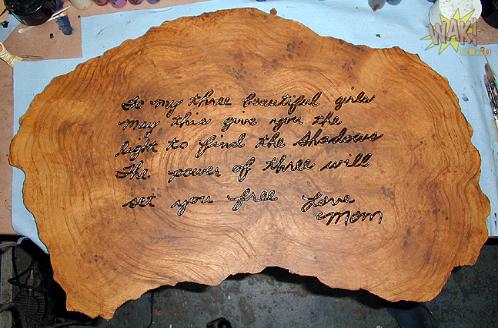 To my three beautiful girls
May this give you the
light to find the shadows
The power of three will
set you free Love
Mom
WAK!